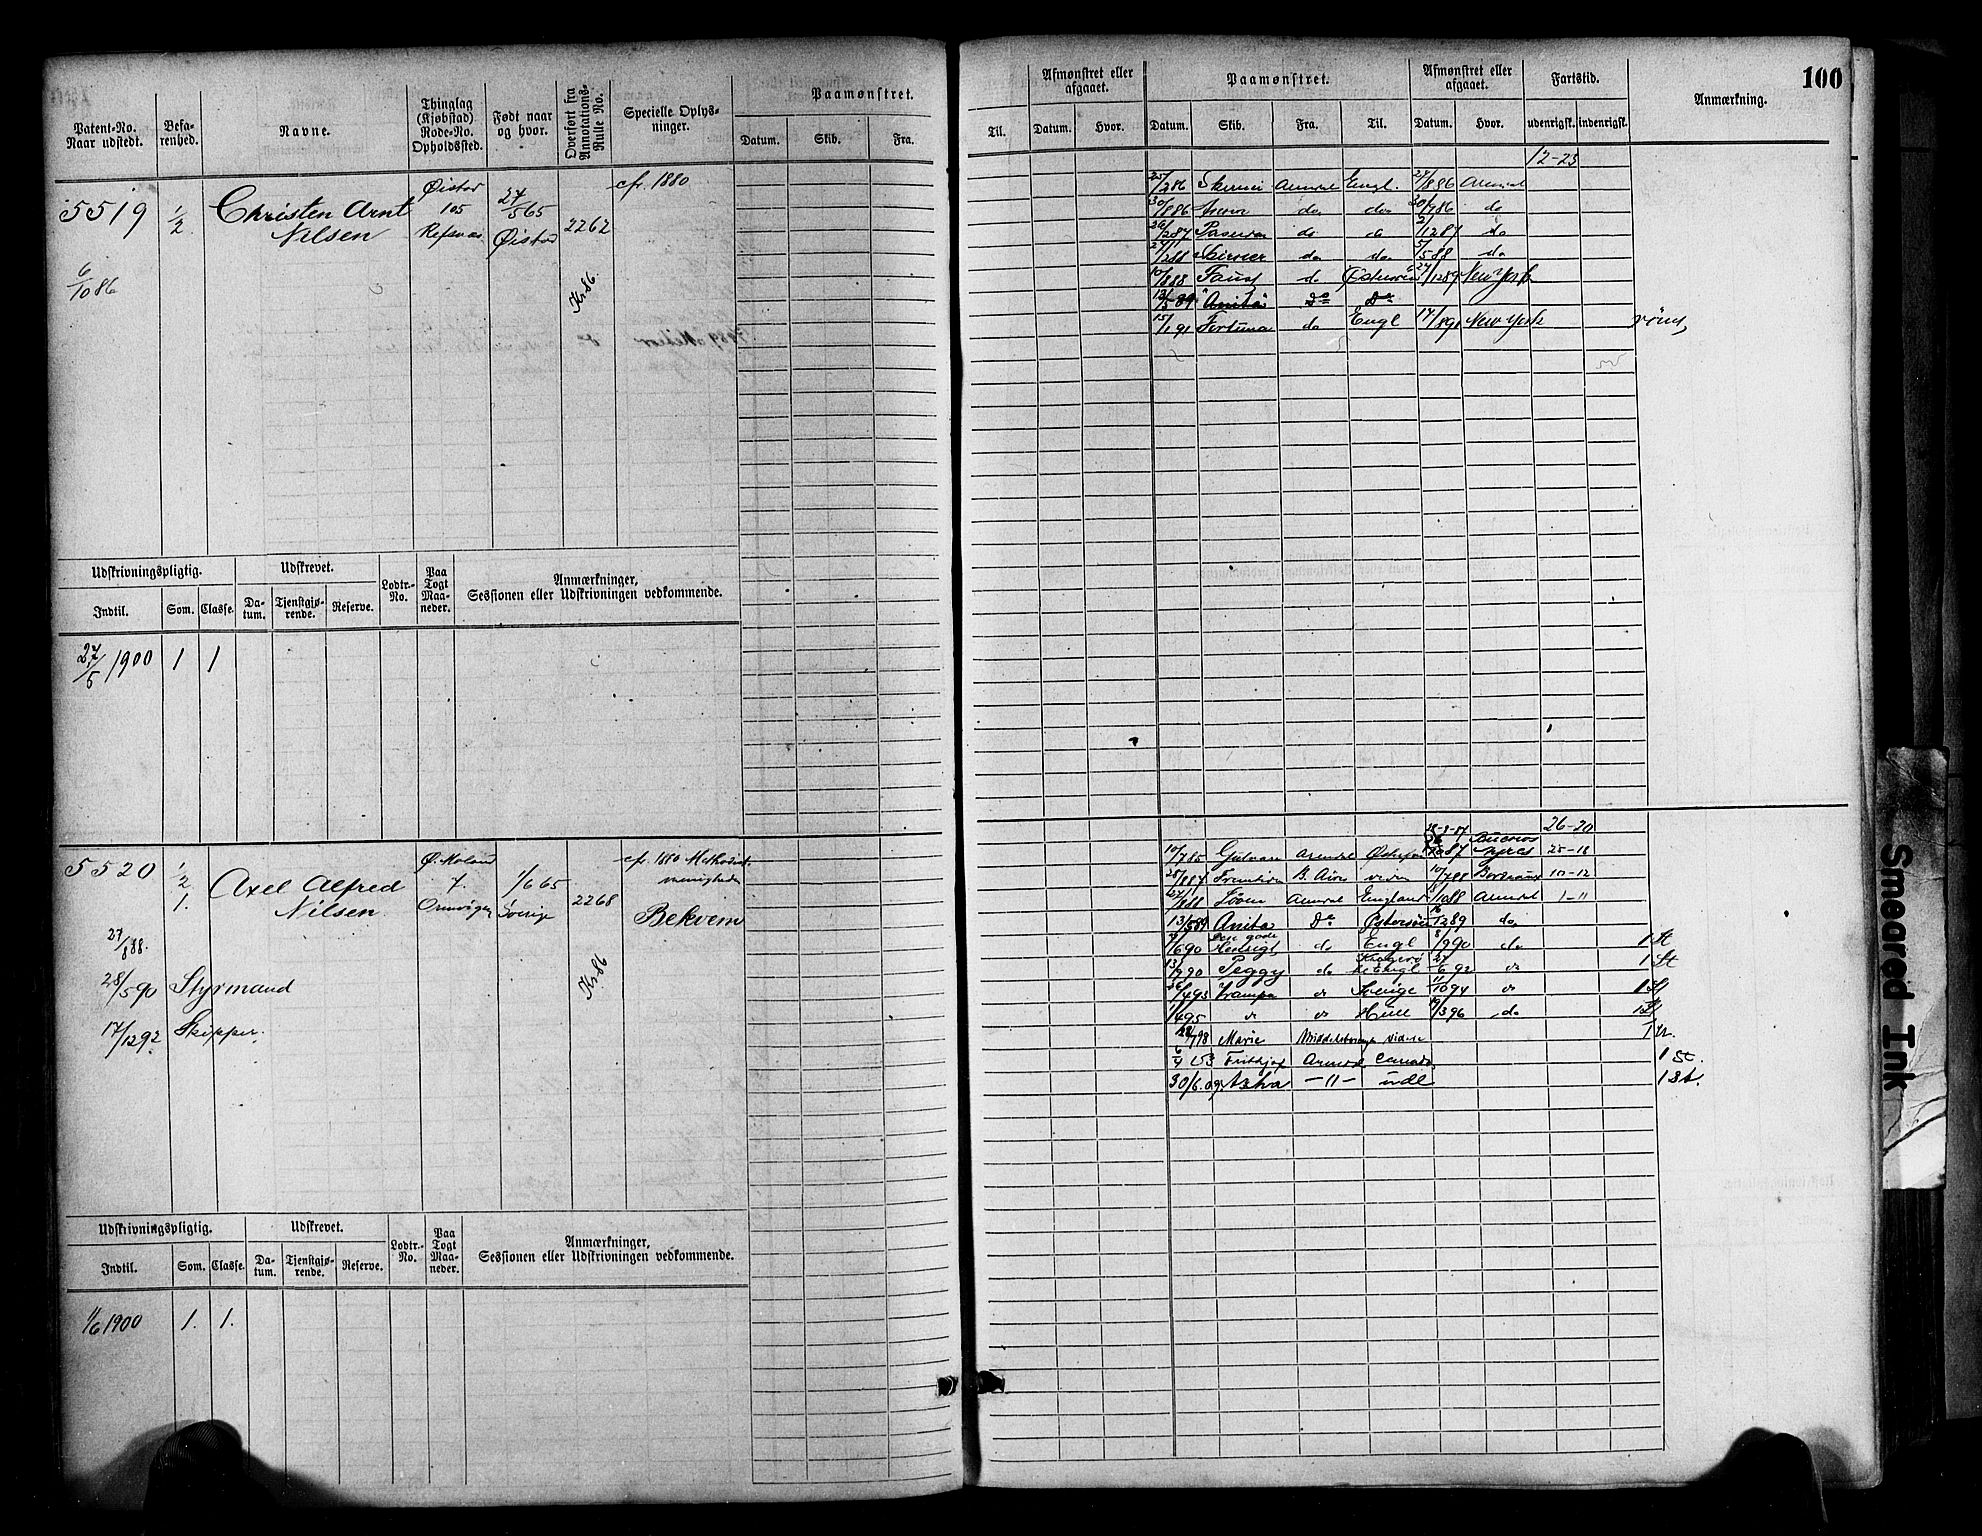 100
Patent-No. Naar udstedt.
Befarenhed.
Navne.
Thinglag (Kjøbstad) Rode-No. Opholdssted.
Født naar og hvor.
Overført fra Annotations-Rulle No.
Specielle Oplysninger.
Paamønstret.
Datum. Skib. Fra.
Til.
Afmønstret eller afgaaet.
Datum. Hvor.
Paamønstret.
Datum. Skib. Fra. Til.
Afmønstret eller afgaaet.
Datum. Hvor.
Fartstid.
udenrigsk. indenrigsk.
Anmærkning.
5519
1/2
Christen Arnt
Nilsen
Øistad
105
27/5 65
Øistad
2262
cfr. 1880
6/10 86
Kr. 86.
12-23
25/2 86 Arendal Engl. 28/8 86 Arendal
30/8 86 do do 30/9 86 do
26/2 87 do do 2/12 87 do
27/1 88 do do 5/5 88 do
10/8 88 Faust do 27/12 89 New York
13/5 89 "Anita" Do Do
15/1 91 Fortuna do Engl 17/8 91 New York rømt
Udskrivningspligtig.
Indtil. Som. Classe.
Udskrevet.
Datum. Tjenstgjørende. Reserve.
Lodtr.-No.
Paa Togt Maaneder.
Anmærkninger, Sessionen eller Udskrivningen vedkommende.
27/5 1900 1 1
5520
1/2
1.
Axel Alfred
Nilsen
Ø. Moland
7.
1/6 65
Sverige
2268
cfr. 1880 Methodist
menigheden
Bekvem
27/8 88.
Kr. 86
28/5 90 Styrmand
17/12 92 Skipper.
26-20
10/7 85 Arendal 87 Buenos Ayres 25-18
25/8 87 Fremtiden B. Aires 10/7 88 Bordeaux 10-12
27/11 88 Løven Arendal England 8/10 88 Arendal 1-11
13/5 89 Anita Do Østersøen 16/12 89 do
7/6 90 Den gode Hensigt do Engl 8/9 90 do 1 St
13/9 90 Peggy do Kragerø Engl 27/6 92 do 1 St
26/4 93 do Sverige 11/10 94 do 1 St
1/4 95 do do Hull 19/3 96 do
98 Marie Middelsbrough videre
Fridtjof Arendal Canada 1 St.
30/6. 09 Astra -11- udl 1 St.
Udskrivningspligtig.
Indtil. Som. Classe.
Udskrevet.
Datum. Tjenstgjørende. Reserve.
Lodtr.-No.
Paa Togt Maaneder.
Anmærkninger, Sessionen eller Udskrivningen vedkommende.
1/6 1900 1. 1.
Smeared Ink